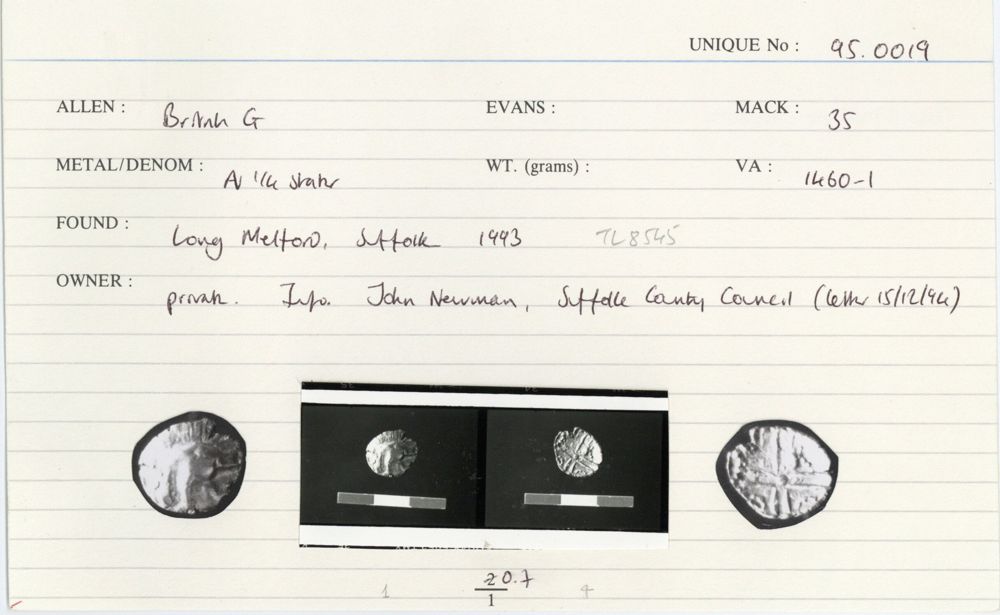 UNIQUE No : 95.0019
ALLEN : British G EVANS : MACK : 35
METAL/DENOM : AV 1/4 stater WT. (grams) : VA : 1460-1
FOUND : Long Melford, Suffolk 1993 TL8545
OWNER : private. Info. John Newman, Suffolk County Council (letter 15/12/94)
1 0.7 4
1